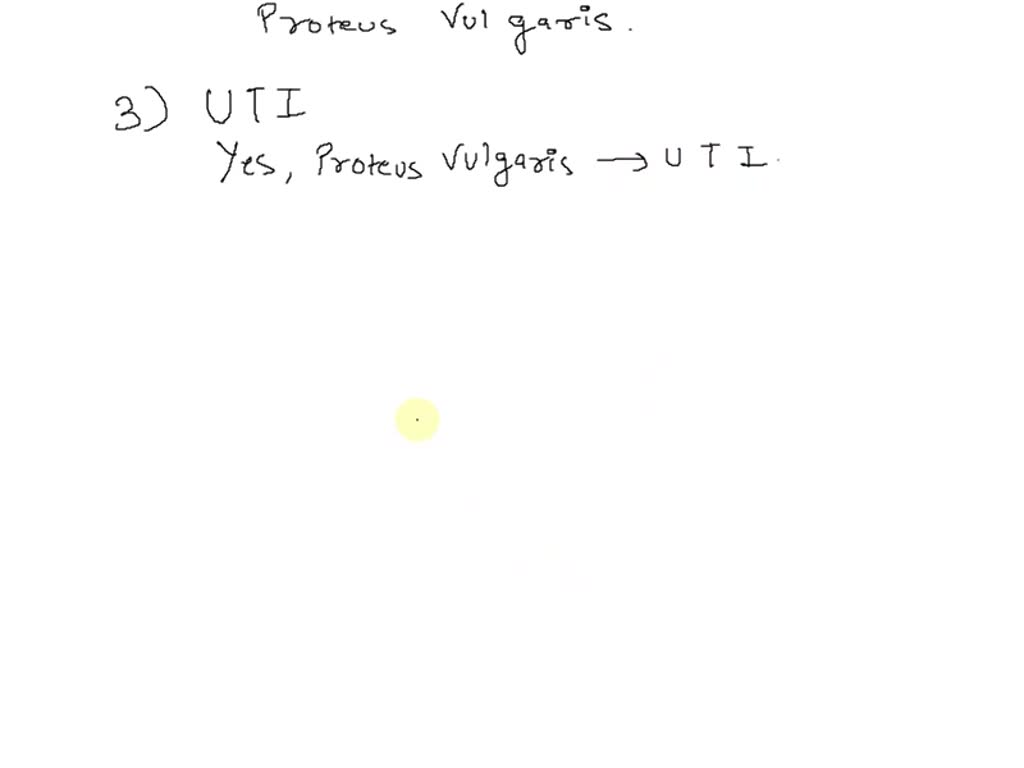 Proteus Vulgaris.
3) UTI
Yes, Proteus Vulgaris → UTI.